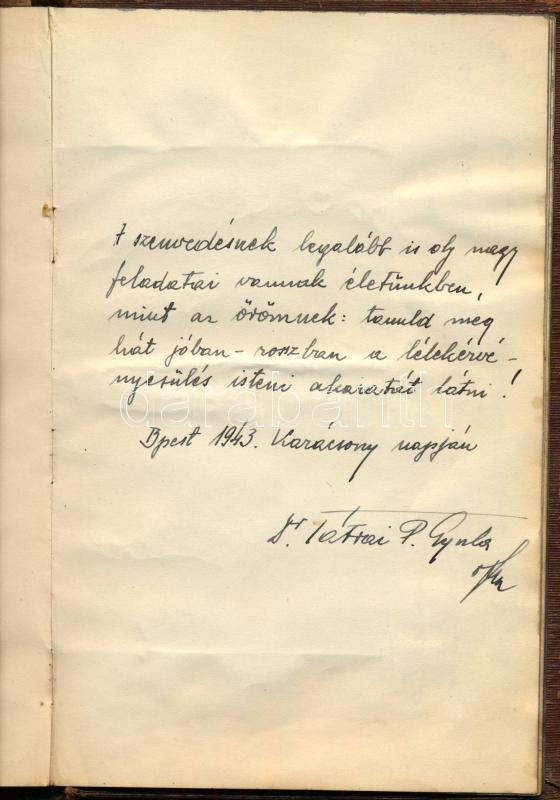 A szenvedésnek legalább is oly nagy
feladatai vannak életünkben,
mint az örömnek: tanuld meg
hát jóban-roszban a lélekérvé-
nyesülés isteni akaratát látni!
Bpest 1943. Karácsony napján
Dr. Tátrai P. Gyula
darabanth